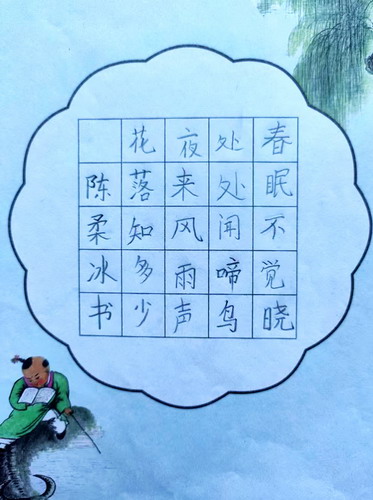 春眠不觉晓
处处闻啼鸟
夜来风雨声
花落知多少
陈柔冰书